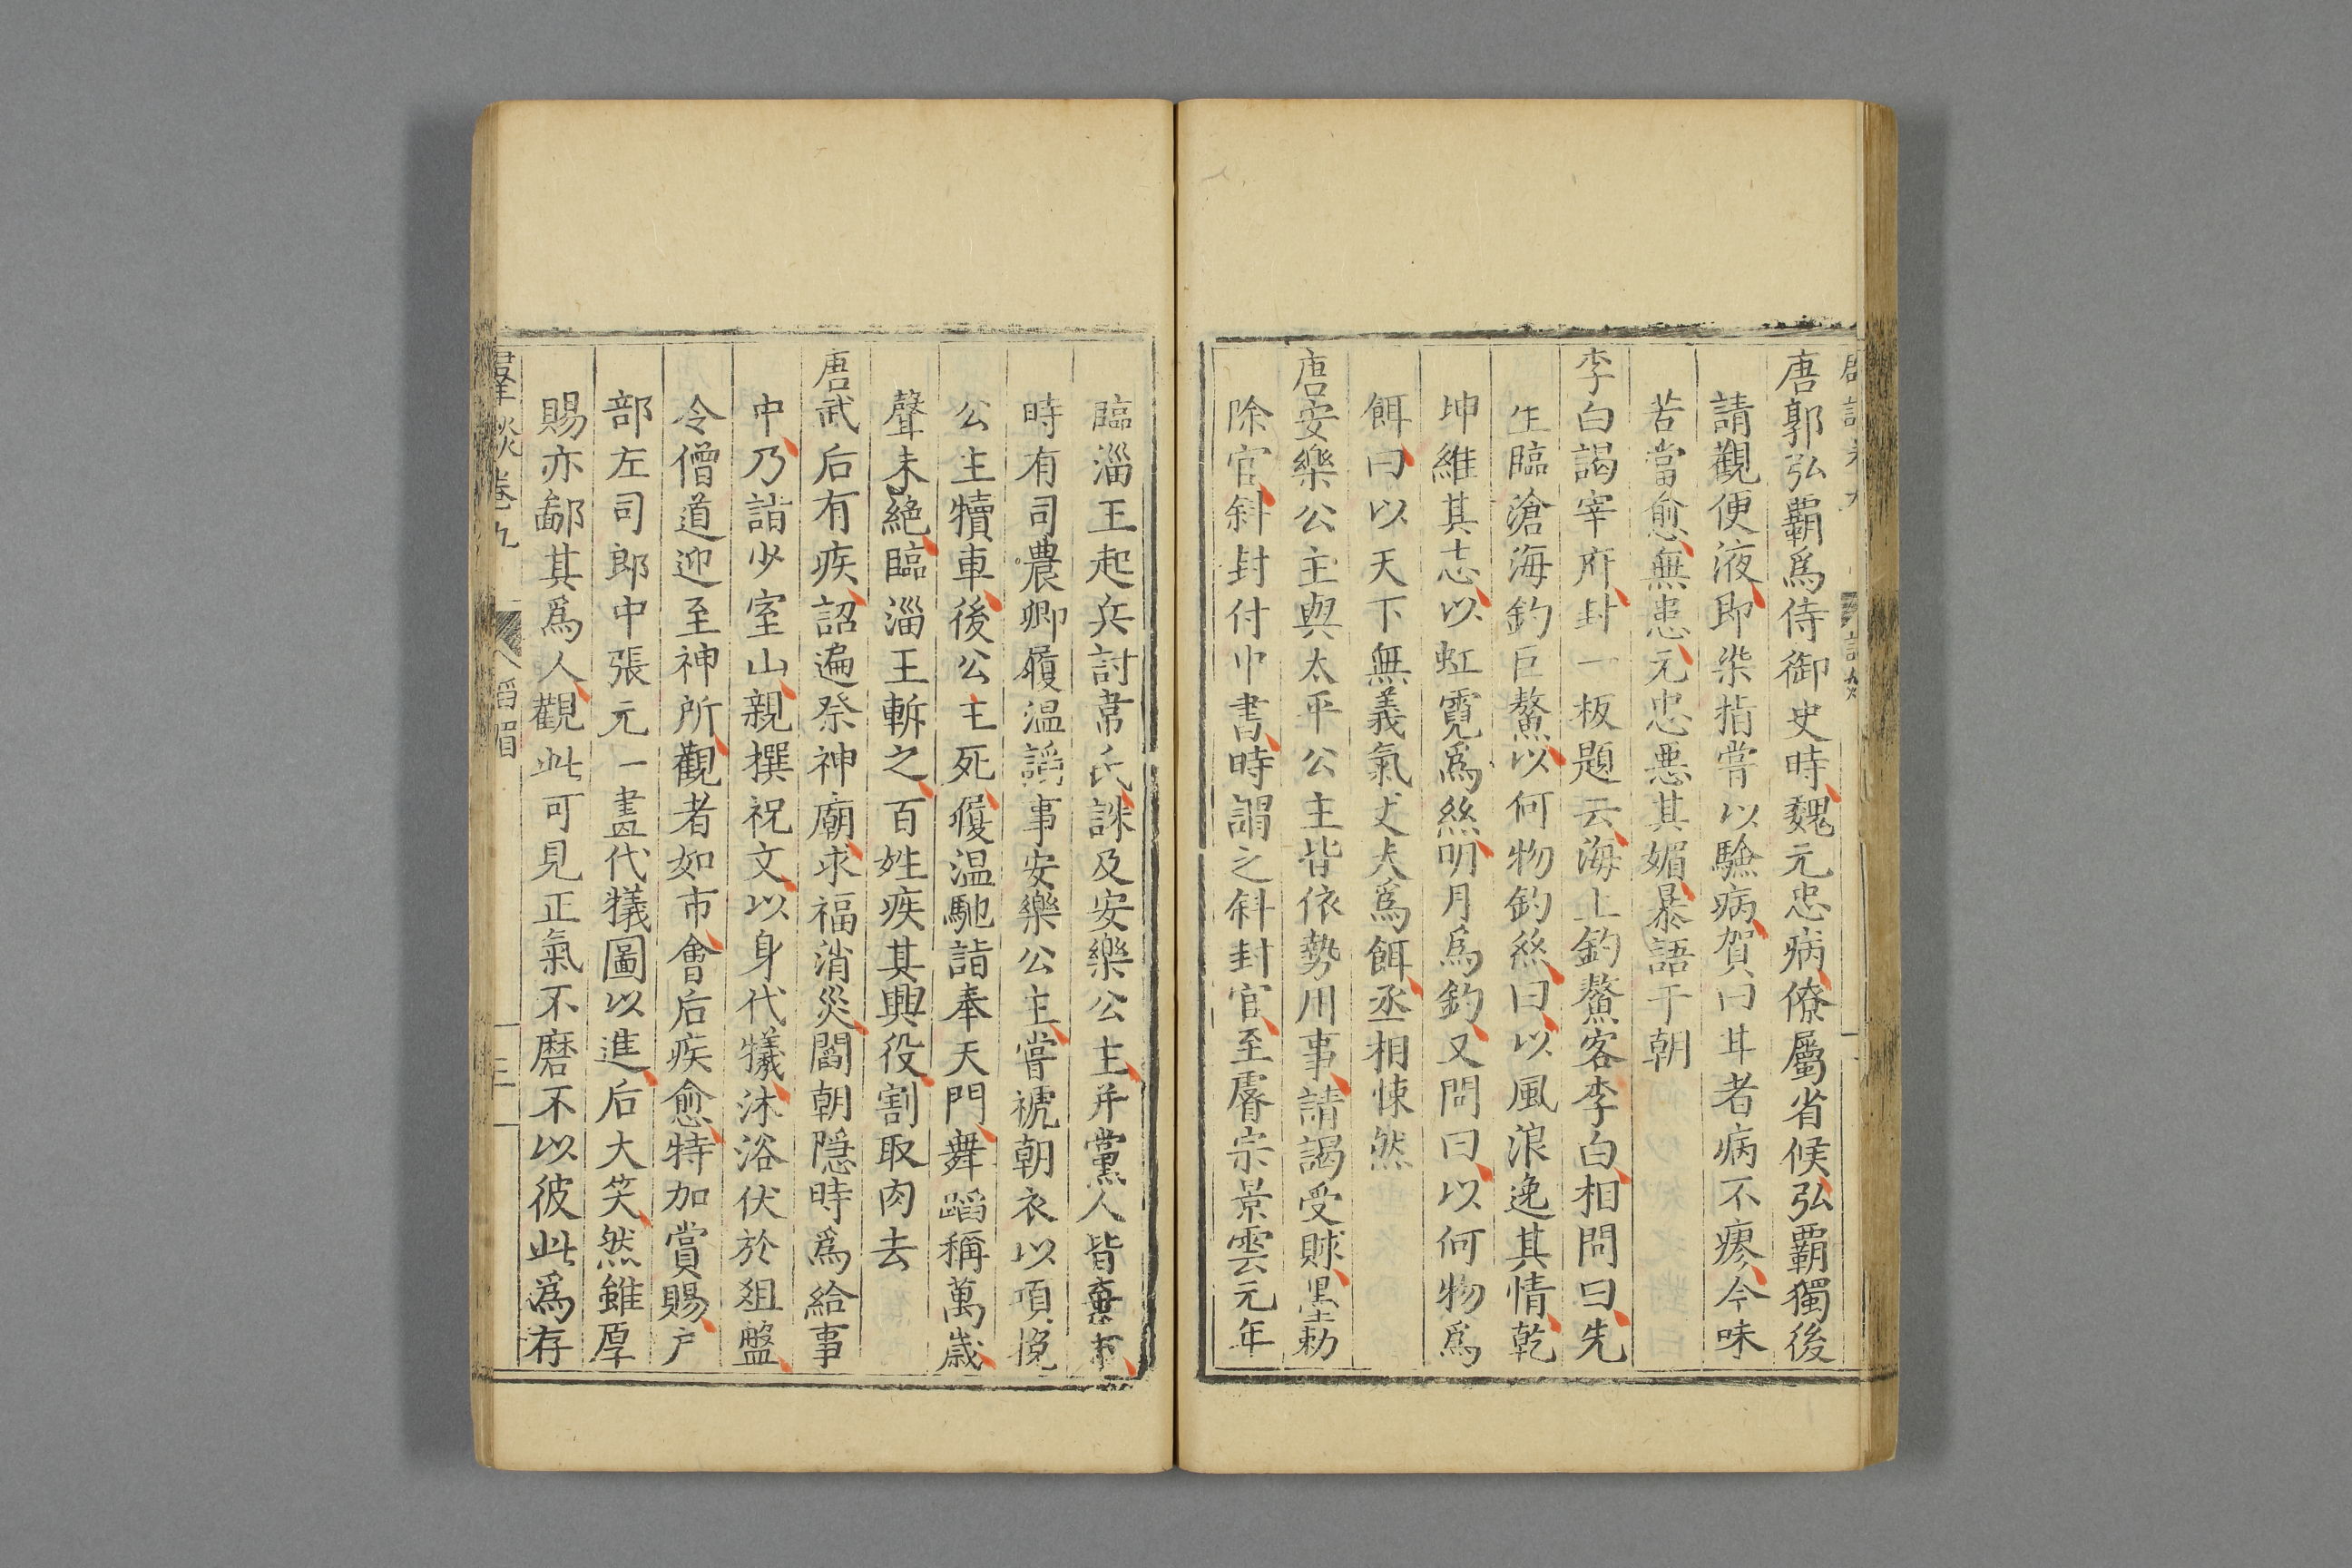 唐郭弘霸爲侍御史時魏元忠病僚屬省候弘霸獨後
請觀便液即染指嘗以驗病賀曰甘者病不瘳今味
苦當愈無患元忠惡其媚暴語于朝
李白謁宰府封一板題云海上釣鰲客李白相問曰先
生臨滄海釣巨鰲以何物釣絲曰以風浪逸其情乾
坤維其志以虹霓爲絲明月爲釣又問曰以何物爲
餌曰以天下無義氣丈夫爲餌丞相悚然
唐安樂公主與太平公主皆依勢用事請謁受賕墨勅
除官斜封付中書時謂之斜封官至睿宗景雲元年
臨淄王起兵討韋氏誅及安樂公主并黨人皆棄市
時有司農卿履温謟事安樂公主嘗褫朝衣以項挽
公主犢車後公主死履温馳詣奉天門舞蹈稱萬歲
聲未絶臨淄王斬之百姓疾其興役割取肉去
唐武后有疾詔遍祭神廟求福消災閻朝隱時爲給事
中乃詣少室山親撰祝文以身代犧沐浴伏於俎盤
令僧道迎至神所觀者如市會后疾愈特加賞賜户
部左司郎中張元一畫代犧圖以進后大笑然雖厚
賜亦鄙其爲人觀此可見正氣不磨不以彼此爲存
羣談卷九 謟媚 三